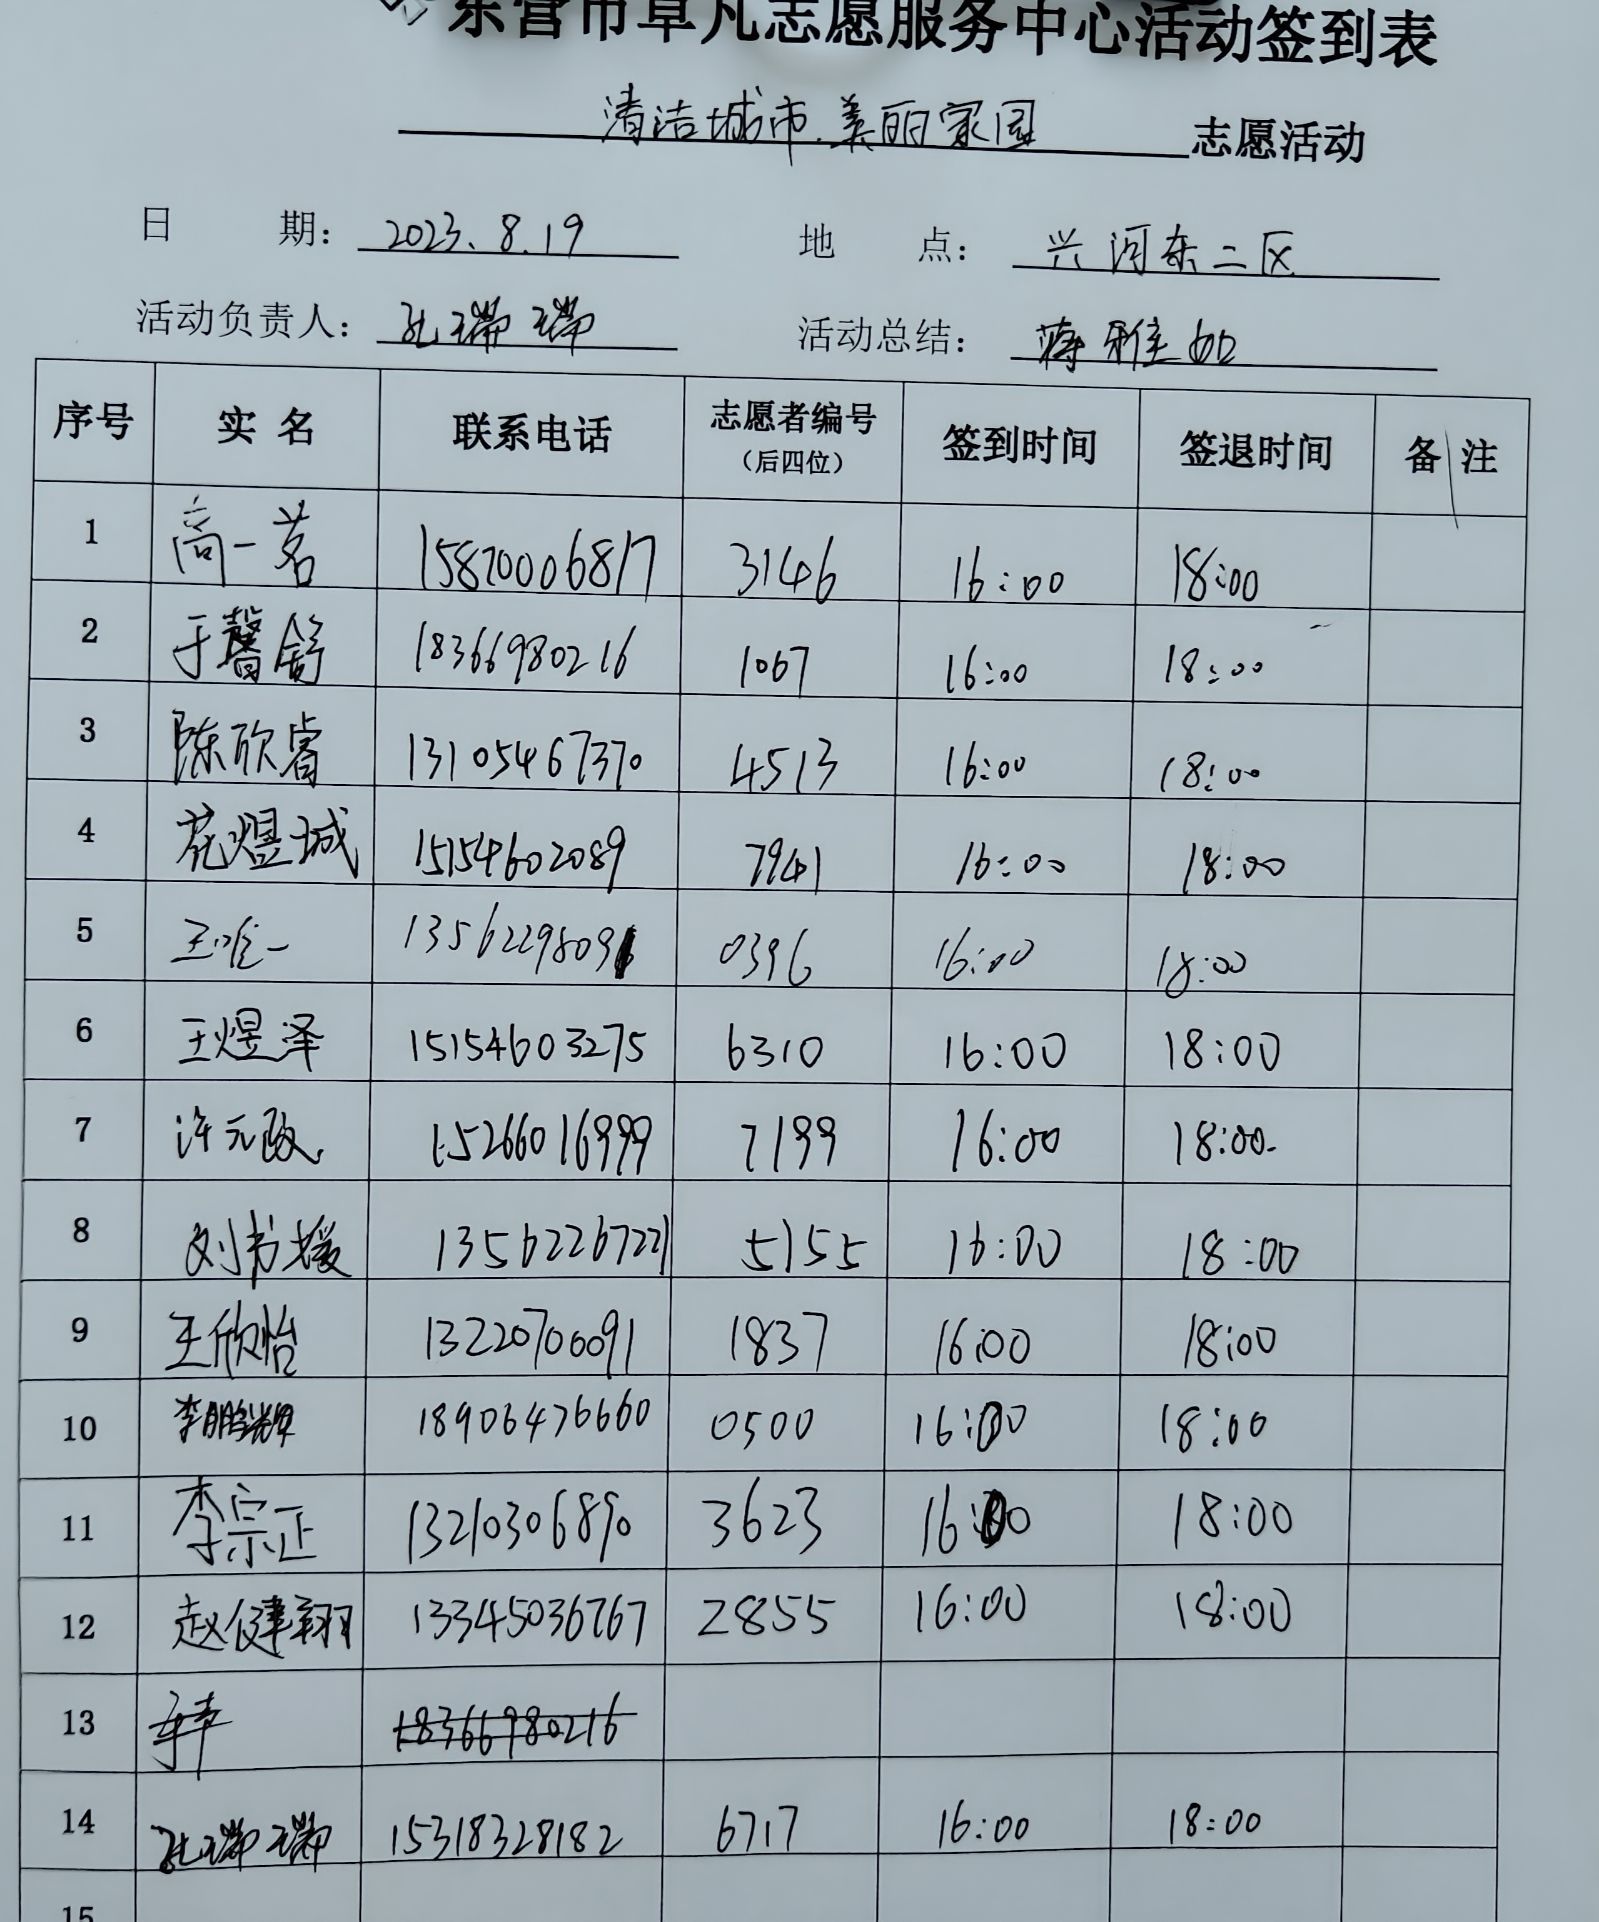 东营市草凡志愿服务中心活动签到表
清洁城市.美丽家园 志愿活动
日 期： 2023.8.19 地 点： 兴河东二区
活动负责人： 孔瑞瑞 活动总结： 蒋雅如
序号 实名 联系电话 志愿者编号（后四位） 签到时间 签退时间 备注
1 高一茗 15870006817 3146 16:00 18:00
2 于馨舒 18366980216 1067 16:00 18:00
3 陈欣睿 13105467370 4513 16:00 18:00
4 花煜城 15154602089 7941 16:00 18:00
5 王唯一 13562298091 0396 16:00 18:00
6 王煜泽 15154603275 6310 16:00 18:00
7 许元改 15266016999 7199 16:00 18:00
8 刘书媛 13562267221 5155 16:00 18:00
9 王欣怡 13220700091 1837 16:00 18:00
10 李鹏辉 18906476660 0500 16:00 18:00
11 李宗正 13210306890 3623 16:00 18:00
12 赵健翔 13345036767 2855 16:00 18:00
13 18366980216
14 孔瑞瑞 15318328182 6717 16:00 18:00
15